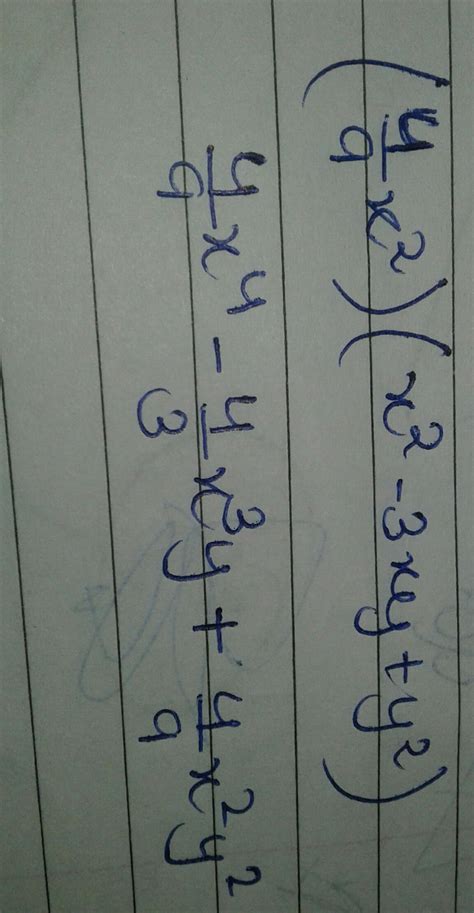 (4/9 x²)(x² - 3xy + y²)
4/9 x⁴ - 4/3 x³y + 4/9 x²y²